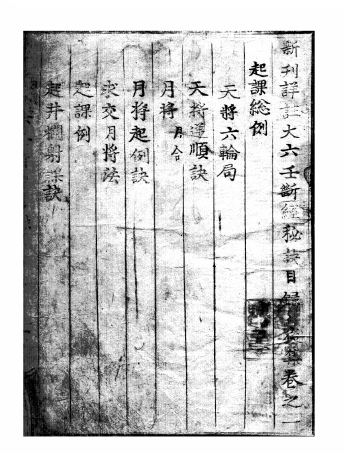 新刊詳註大六壬斷經秘訣目錄卷之一
起課總例
天將六輪局
天將逆順訣
月將 月合
月將起例訣
求交月將法
起課例
起井欄射課訣